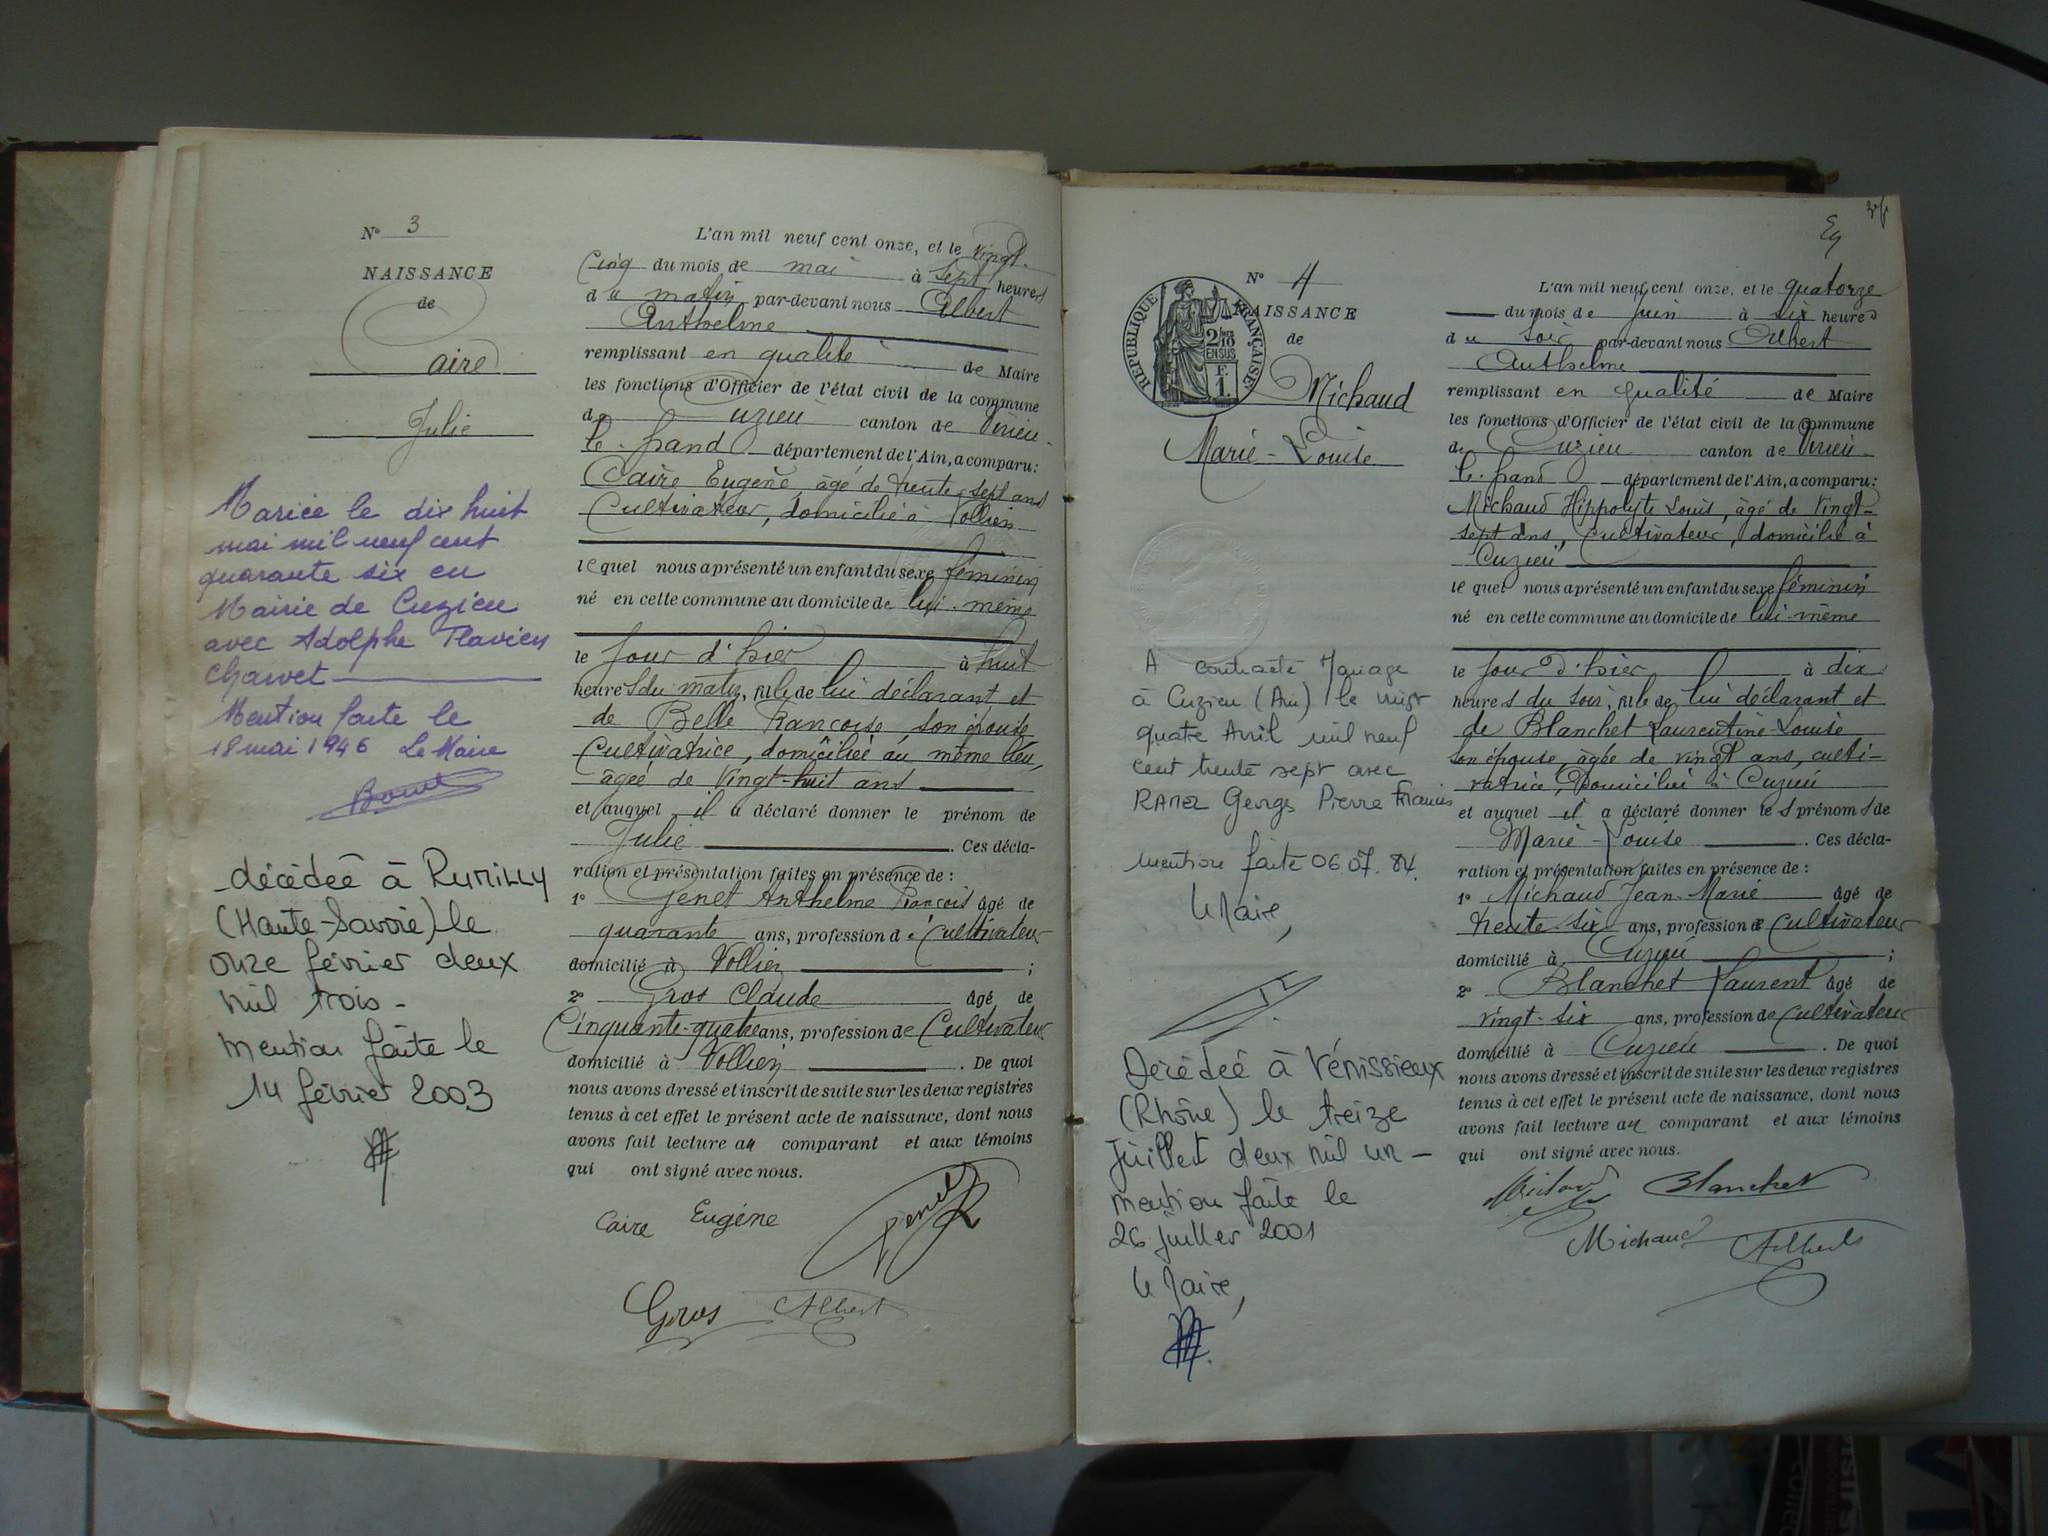 N° 3
NAISSANCE
de
Caire
Julie
Mariée le dix huit
mai mil neuf cent
quarante six en
Mairie de Cuzieu
avec Adolphe Flavien
Chavvet
Mention faite le
18 mai 1946 Le Maire
décédée à RUMILLY
(Haute-Savoie) le
onze février deux
mil trois -
mention faite le
14 février 2003
L'an mil neuf cent onze, et le vingt-
cinq du mois de mai à sept heures
du matin par-devant nous Albert
Anthelme
remplissant en qualité de Maire
les fonctions d'Officier de l'état civil de la commune
de Cuzieu canton de Virieu-
le-Grand département de l'Ain, a comparu:
Caire Eugène, âgé de trente-sept ans
Cultivateur, domicilié à Vollien
lequel nous a présenté un enfant du sexe féminin
né en cette commune au domicile de lui-même
le jour d'hier à huit
heures du matin, fille de lui déclarant et
de Belle Françoise, son épouse
Cultivatrice, domiciliée au même lieu,
âgée de vingt-huit ans
et auquel il a déclaré donner le prénom de
Julie. Ces décla-
ration et présentation faites en présence de :
1° Genet Anthelme François âgé de
quarante ans, profession de Cultivateur
domicilié à Vollien ;
2° Gros Claude âgé de
Cinquante-quatre ans, profession de Cultivateur
domicilié à Vollien. De quoi
nous avons dressé et inscrit de suite sur les deux registres
tenus à cet effet le présent acte de naissance, dont nous
avons fait lecture au comparant et aux témoins
qui ont signé avec nous.
Caire Eugène Genet
Gros Albert
N° 4
NAISSANCE
de
RÉPUBLIQUE FRANÇAISE
2/10
EN SUS
F.
1.
Michaud
Marie-Louise
A contracté Mariage
à Cuzieu (Ain) le vingt
quatre Avril mil neuf
cent trente sept avec
Georges Pierre Francis
mention faite 06.07.84.
Le Maire,
Décédée à Vénissieux
(Rhône) le treize
Juillet deux mil un -
mention faite le
26 juillet 2001
Le Maire,
L'an mil neuf cent onze, et le quatorze
du mois de juin à six heures
du soir par-devant nous Albert
Anthelme
remplissant en qualité de Maire
les fonctions d'Officier de l'état civil de la commune
de Cuzieu canton de Virieu-
le-Grand département de l'Ain, a comparu:
Michaud Hippolyte Louis, âgé de vingt-
sept ans, Cultivateur, domicilié à
Cuzieu
lequel nous a présenté un enfant du sexe féminin
né en cette commune au domicile de lui-même
le jour d'hier à dix
heures du soir, fille de lui déclarant et
de Blanchet Laurentine-Louise
son épouse, âgée de vingt ans, culti-
vatrice, domiciliée à Cuzieu
et auquel il a déclaré donner les prénoms de
Marie-Louise. Ces décla-
ration et présentation faites en présence de :
1° Michaud Jean-Marie âgé de
trente-six ans, profession de Cultivateur
domicilié à Cuzieu ;
2° Blanchet Laurent âgé de
vingt-six ans, profession de Cultivateur
domicilié à Cuzieu. De quoi
nous avons dressé et inscrit de suite sur les deux registres
tenus à cet effet le présent acte de naissance, dont nous
avons fait lecture au comparant et aux témoins
qui ont signé avec nous.
Michaud Blanchet
Michaud Albert